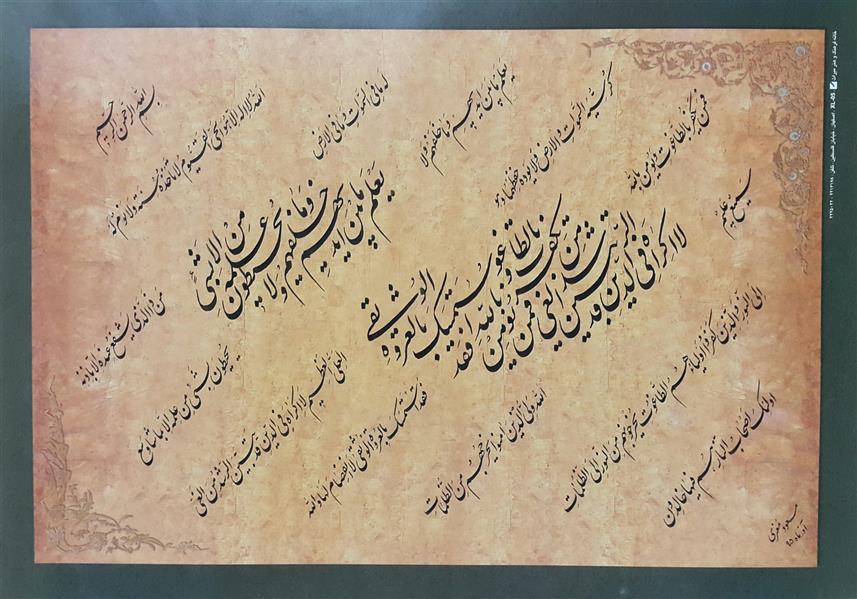 بسم الله الرحمن الرحیم
الله لا اله الا هو الحی القیوم لا تاخذه سنة ولا نوم
له ما فی السموات وما فی الارض
من ذا الذی یشفع عنده الا باذنه
یعلم ما بین ایدیهم وما خلفهم ولا
یحیطون بشیء من علمه الا بما شاء وسع
کرسیه السموات والارض ولا یؤده حفظهما وهو
العلی العظیم لا اکراه فی الدین قد تبین الرشد من الغی
فمن یکفر بالطاغوت ویؤمن بالله
فقد استمسک بالعروة الوثقی لا انفصام لها والله
سمیع علیم
الله ولی الذین امنوا یخرجهم من الظلمات
الی النور والذین کفروا اولیاؤهم الطاغوت یخرجونهم من النور الی الظلمات
اولئک اصحاب النار هم فیها خالدون
یعلم ما بین ایدیهم
وما خلفهم ولا
یحیطون
من علمه الا
لا اکراه فی الدین قد تبین
الرشد من الغی فمن یکفر
بالطاغوت ویؤمن بالله فقد
استمسک بالعروة
الوثقی
مسعود